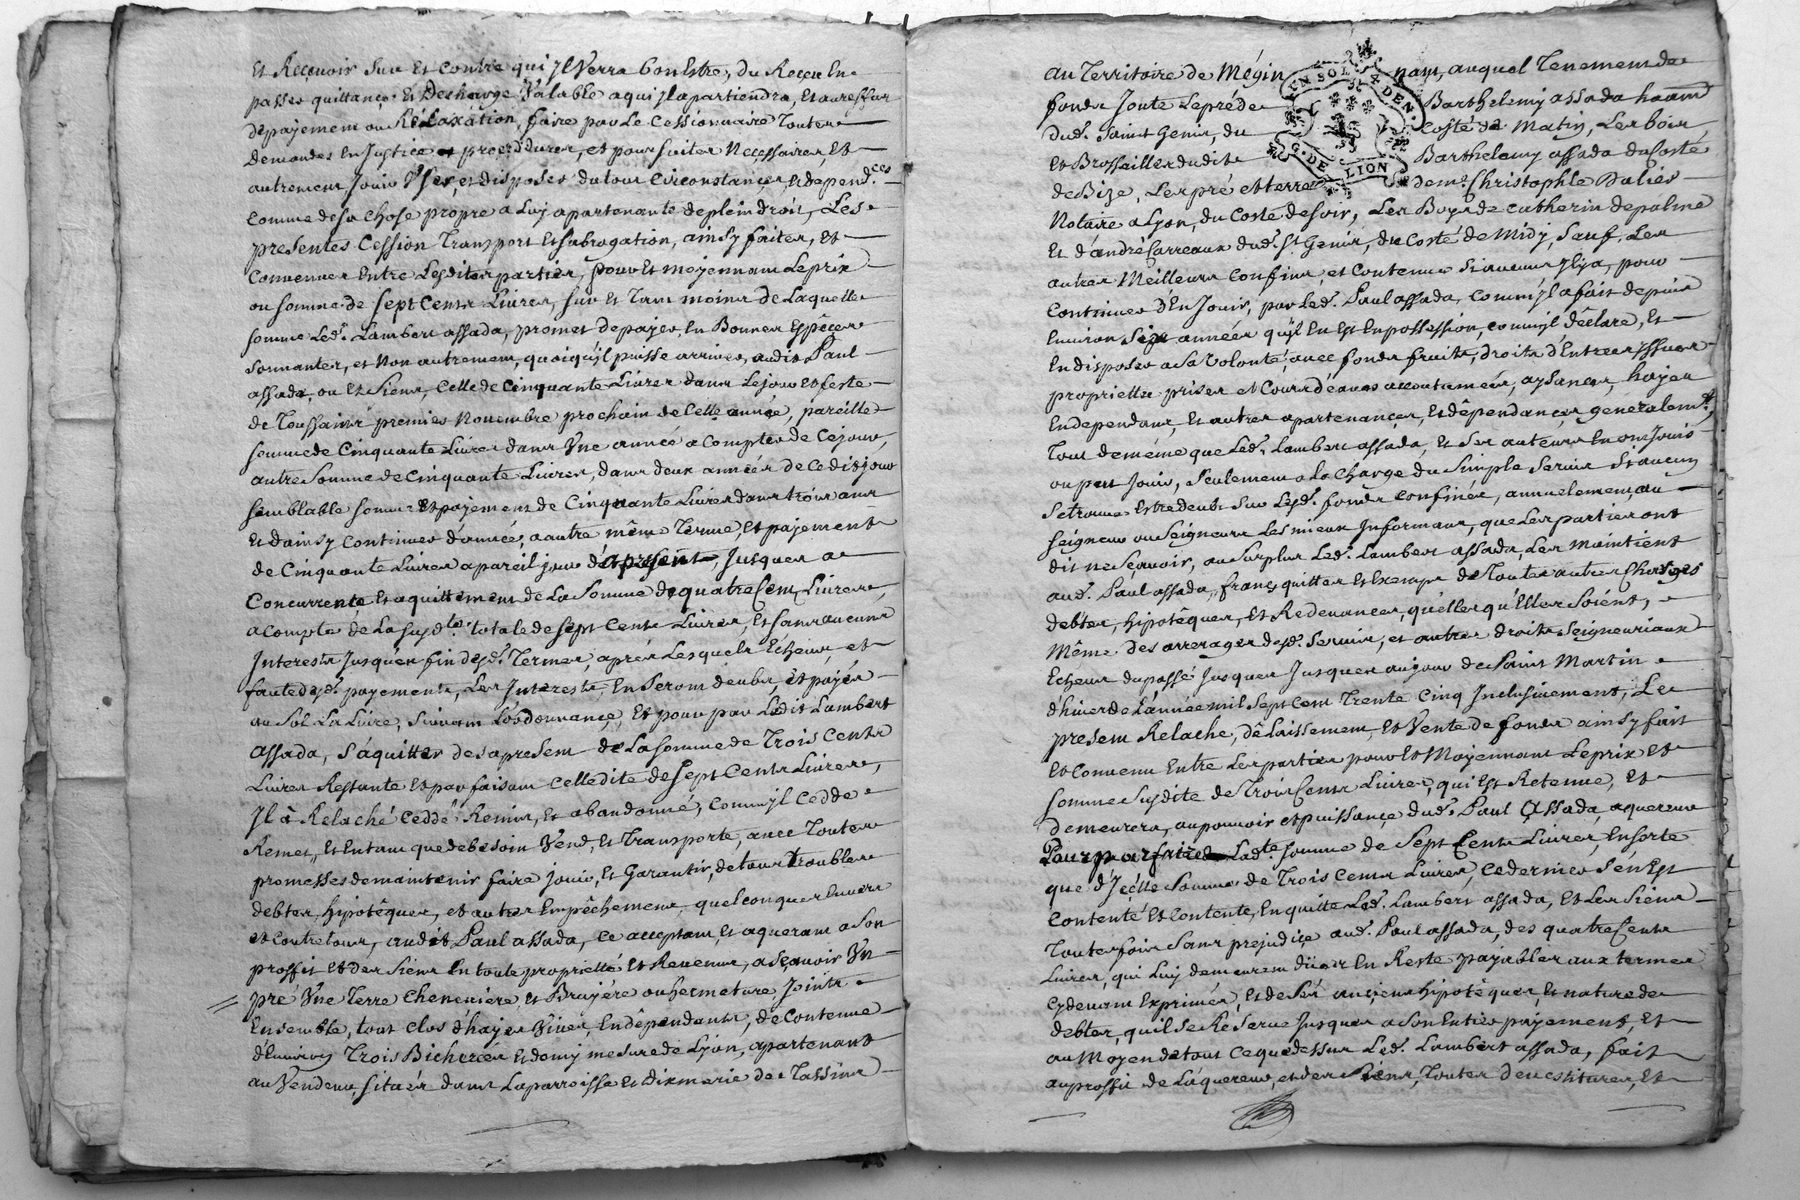 Et Reçeuoir sur Et contre qui Jl Verra bon Estre, du Reçeu En
passer quittançe Et Descharge Valable a qui Jl apartiendra, Et au reffus
de payement ou Relaxation, faire par Le Cessionnaire Toutes
demandes En Justice et procedures, et poursuites Necessaires, Et
autrement Jouir Vser, et disposer du tout circonstances, et depend.ces
Comme de sa chose propre a Luy apartenante de plein droit, Les
presentes Cession Transport Et subrogation, ainsy faites, Et
Conuenues Entre Lesdites parties, pour Et moyennant Le prix
ou somme de sept Cents Liures, sur Et Tant moins de Laquelle
somme Led.t Lambert assada, promet de payer, En Bonnes Espêces
sonnantes, et Non autrement, quoiqu'jl puisse arriuer, audit Paul
assada, ou Ez siens, Celle de Cinquante Liures dans Le jour Et feste
de Toussaints premier Nouembre prochain de Celle année, pareille
somme de Cinquante Liures dans Vne année a Compter de Cejour,
autre Somme de Cinquante Liures, dans deux années de Cedit jour
semblable somme Et payement de Cinquante Liures dans trois ans
Et d'ainsy Continuer d'année, a autre même Terme, Et payement
de Cinquante Liures a pareil jour d'Et present, Jusques a
Concurrente Et aquittement de La Somme de quatre Cent Liures,
a compte de La susd.te totale de sept Cents Liures, Et sans aucuns
Interests Jusqu'en fin desd.ts Termes, apres Lesquels Echeus, et
faute desd.ts payements, Les Interests, En seront deubs, Et payés
au Sol La Liure, suiuant L'ordonnançe, Et pour par Ledit Lambert
assada, S'aquitter des apresent de La somme de Trois Cents
Liures Restante Et parfaisant Celledite de sept Cents Liures,
Jl à Relaché Ceddé Remis, Et abandonné, Comm'jl Cedde
Remet, Et En tant que de besoin Vend, Et Transporte, auec Toutes
promesses de maintenir faire jouir, Et Garantir, de tous Troubles
debtes, hipotêques, et autres Empêchements, quelconques Enuers
et contre tous, audit Paul assada, Ce acceptant, Et aquerant a Son
proffit Et des siens En toute proprieté Et Reuenus, a Sçauoir Vn
pré Vne Terre Cheneuiere, et Bruyére ou hermeture Joints
Ensemble, tout Clos d'hayes Viues, En dêpendants, de Contenue
d'Enuiron Trois Bicherées Et demy mesure de Lyon, apartenant
au Vendeur, situés dans La parroisse et dixmerie de Tassins
au Territoire de Mégin nant, auquel Tenement de
fonds Joute Le pré de Barthelemy assada
dud.t Saint Genis, du Costé de Matin, Les bois
et Brossailles dudit Barthelemy assada du Costé
de Bize, Les pré et terre de m.e Christophle Dalier
Notaire a Lyon, du Costé de soir, Les Boys de Catherin depalme
Et d'andré Carreaux dud.t S.t Genis, du Costé de Midy, Sauf Les
autres Meilleurs Confins, et Contenue si aucuns Jl y a, pour
Continuer d'En Jouir, par Led.t Paul assada, Comm'jl a fait depuis
Enuiron Seze années qu'jl En Est En possession, comm'jl déclare, Et
En disposer a Sa Volonté, auec fonds fruits, droits d'Entrees Jssues
proprietté prises et Cours d'eaux accoutumées, aysances, hayes
En dependant, Et autres apartenançes, Et dêpendançes généralem.t
Tout de même que Led.t Lambert assada, Et Ses auteurs En ont Jouis
ou peu Jouir, Seulement a La Charge du Simple Seruis Si aucun
Se trouue Estre deub Sur Lesd.ts fonds confinés, annuelement, au
seigneur ou Seigneurs Les mieux Informans, que Les parties ont
dit ne Sçauoir, au Surplus Led.t Lambert assada, Les maintient
aud.t Paul assada, françs quittes Et Exempt de Toutes autres Charges
debtes, hipotêques, Et Redeuances, quelles qu'Elles Soient,
Même des arrerages desd.ts Seruis, et autres droits Seigneuriaux
Echeus du passé Jusques aujour de Saint Martin
d'hiuer de L'année mil sept Cent Trente Cinq Jnclusiuement, Le
present Relache, dêlaissement, Et Vente de fonds ainsy fait
et Conuenu Entre Les parties pour Et Moyennant Le prix Et
Somme Susdite de Trois Cents Liures, qui Est Retenue, Et
demeurera, au pouuoir Et puissance dud.t Paul Assada, aquereur
Pour parfaire Lad.te Somme de Sept Cents Liures, En sorte
que d'Jçelle Somme de Trois Cents Liures, Ce dernier S'En Est
Contenté Et Contente, En quitte Led.t Lambert assada, Et Les Siens
Toutes fois Sans prejudiçe aud.t Paul assada, des quatre Cents
Liures, qui Luy demeurent düés En Reste payables aux termes
Cydeuant Exprimés, Et de Ses anciens hipotêques, Et nature de
debtes, qu'il Se Reserue Jusques a Son Entier payement, Et
au Moyen de tout Ce que dessus Led.t Lambert assada, fait
au proffit de L'aquereur, et des Siens, Toutes deuestitures, Et
IN SOL 4 DEN.
G. DE LION